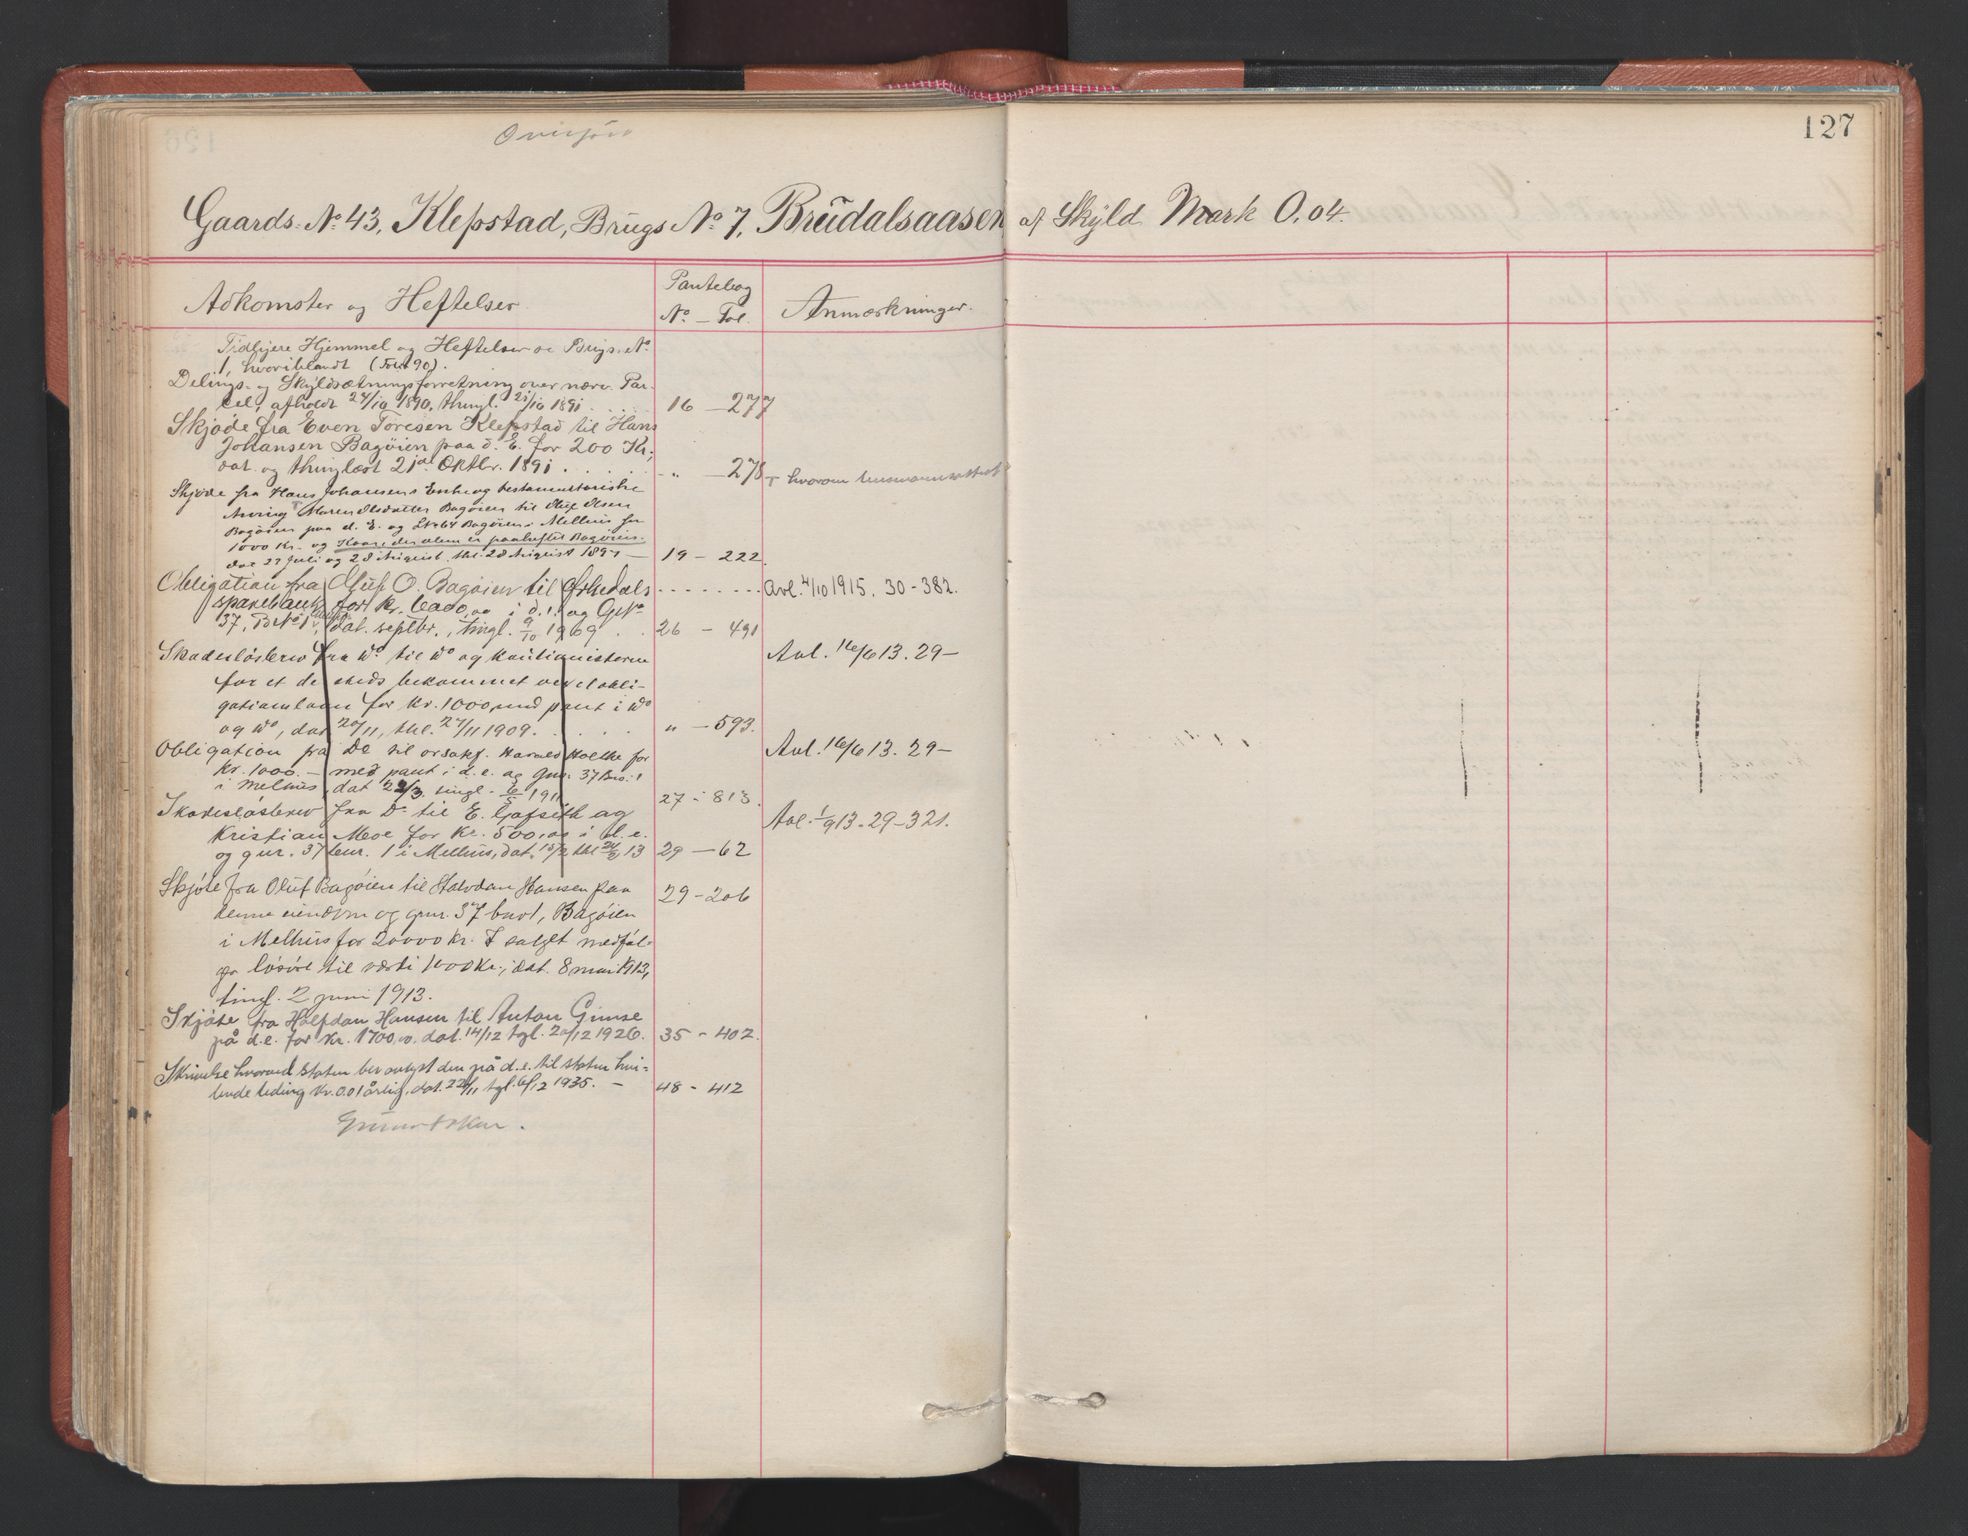 127
Gaards. No 43, Klepstad, Brugs No 7, Brudalsaasen af Skyld Mark 0,04.
Adkomster og Heftelser.
Pantebog
No. — Fol.
Anmærkninger.
Tidligere Hjemmel og Heftelser se Brugs-No
1, hvoriblandt (Fol 90).
Delings- og Skyldsætningsforretning over nærv. Par-
cel, afholdt 27/10 1890, thingl. 21/10 1891 . . . . 16 — 277
Skjøde fra Even Toresen Klepstad til Hans
Johansen Bagøien paa d. E. for 200 Kr.,
dat. og thinglæst 21de Oktbr. 1891 . . . . . " — 278 hvorom
Skjøde fra Hans Johansens Enke og testamentariske
Arving Maren Olsdatter Bagøien til Oluf Olsen
Bagøien paa d. E. og Bagøien i Melhus for
1000 Kr. og
dat 27 Juli og 28 August thl. 28 August 189 — 19 — 222.
Obligation fra Oluf O. Bagøien til Ørkedals . . . . . . . . Avl. 4/10 1915. 30-382.
sparebank for kr. og G.No
37, B.No 1, dat. septbr., tingl. 9/10 1909 . . 26 — 491
Skadesløsbrev fra Do til Do og kautionisterne Avl. 16/6 13. 29—
for et de steds bekommet vexelobli-
gationslaan for kr. 1000, med pant i Do
og Do, dat 20/11, thl. 27/11 1909. . . . . . " — 593.
Obligation fra Do til orsakf. Harald Holtke for Avl. 16/6 13. 29—
kr. 1000.— med pant i d. e. og gnr. 37 Bno. 1
i Melhus, dat 22/3 tingl. 6/5 1911 27 - 813.
Skadesløsbrev fra Do til E. Gafseth og Avl. 1/9 13. 29-321.
Kristian Moe for kr. 500,00 i d. e.
og gnr. 37 bnr. 1 i Melhus, dat. 15/2 thl 24/2 13 29 — 62
Skjøte fra Oluf Bagøien til Halvdan Hansen paa 29 - 206
denne eiendom og gnr. 37 bno 1, Bagøien
i Melhus for 20000 kr. I salget medføl-
ger løsøre til værdi 1000 kr., dat. 8 mai 1913,
tingl. 2 juni 1913.
Skjøte fra Halfdan Hansen til Anton Gimse
på d.e. for kr. 1700,00, dat. 14/12 tgl. 20/12 1926. 35 - 402.
Skrivelse hvorved staten ber avlyst den på d.e. til staten hvi-
lende leding kr. 0.01 årlig, dat. 22/11 tgl. 6/12 1935. — 48 - 412